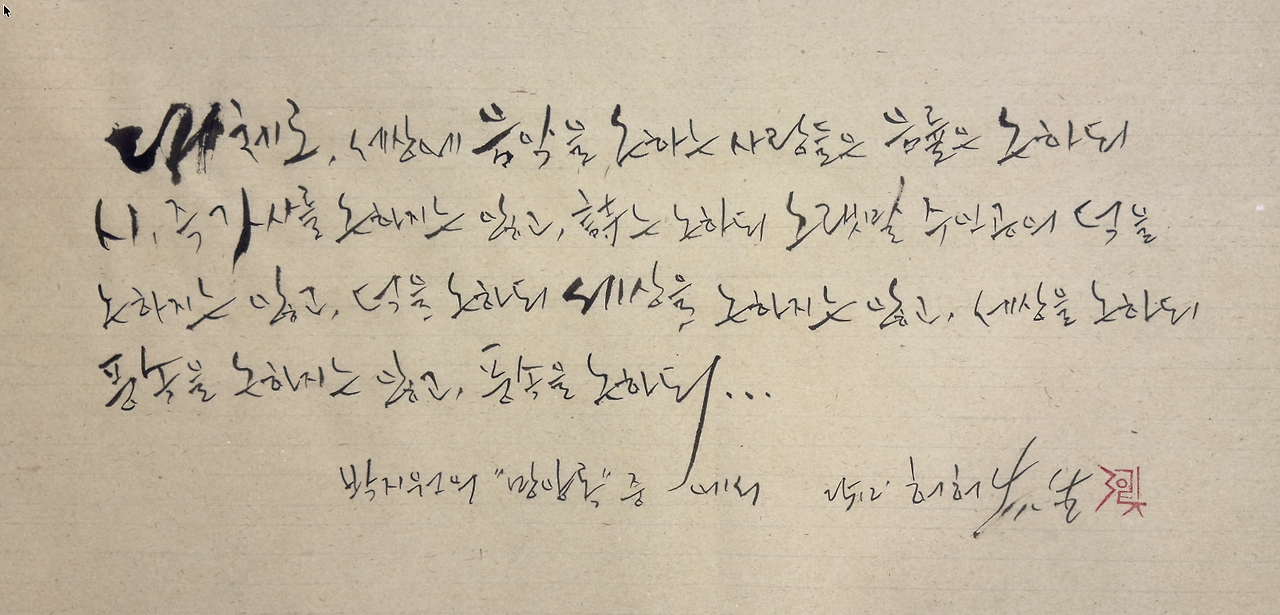 대체로, 세상에 음악을 논하는 사람들은 음률은 논하되
시, 즉 가사를 논하지는 않고, 詩는 논하되 노랫말 주인공의 덕을
논하지는 않고, 덕을 논하되 세상을 논하지는 않고, 세상을 논하되
풍속을 논하지는 않고, 풍속을 논하되...
박지원의 "망양록" 중에서 허허